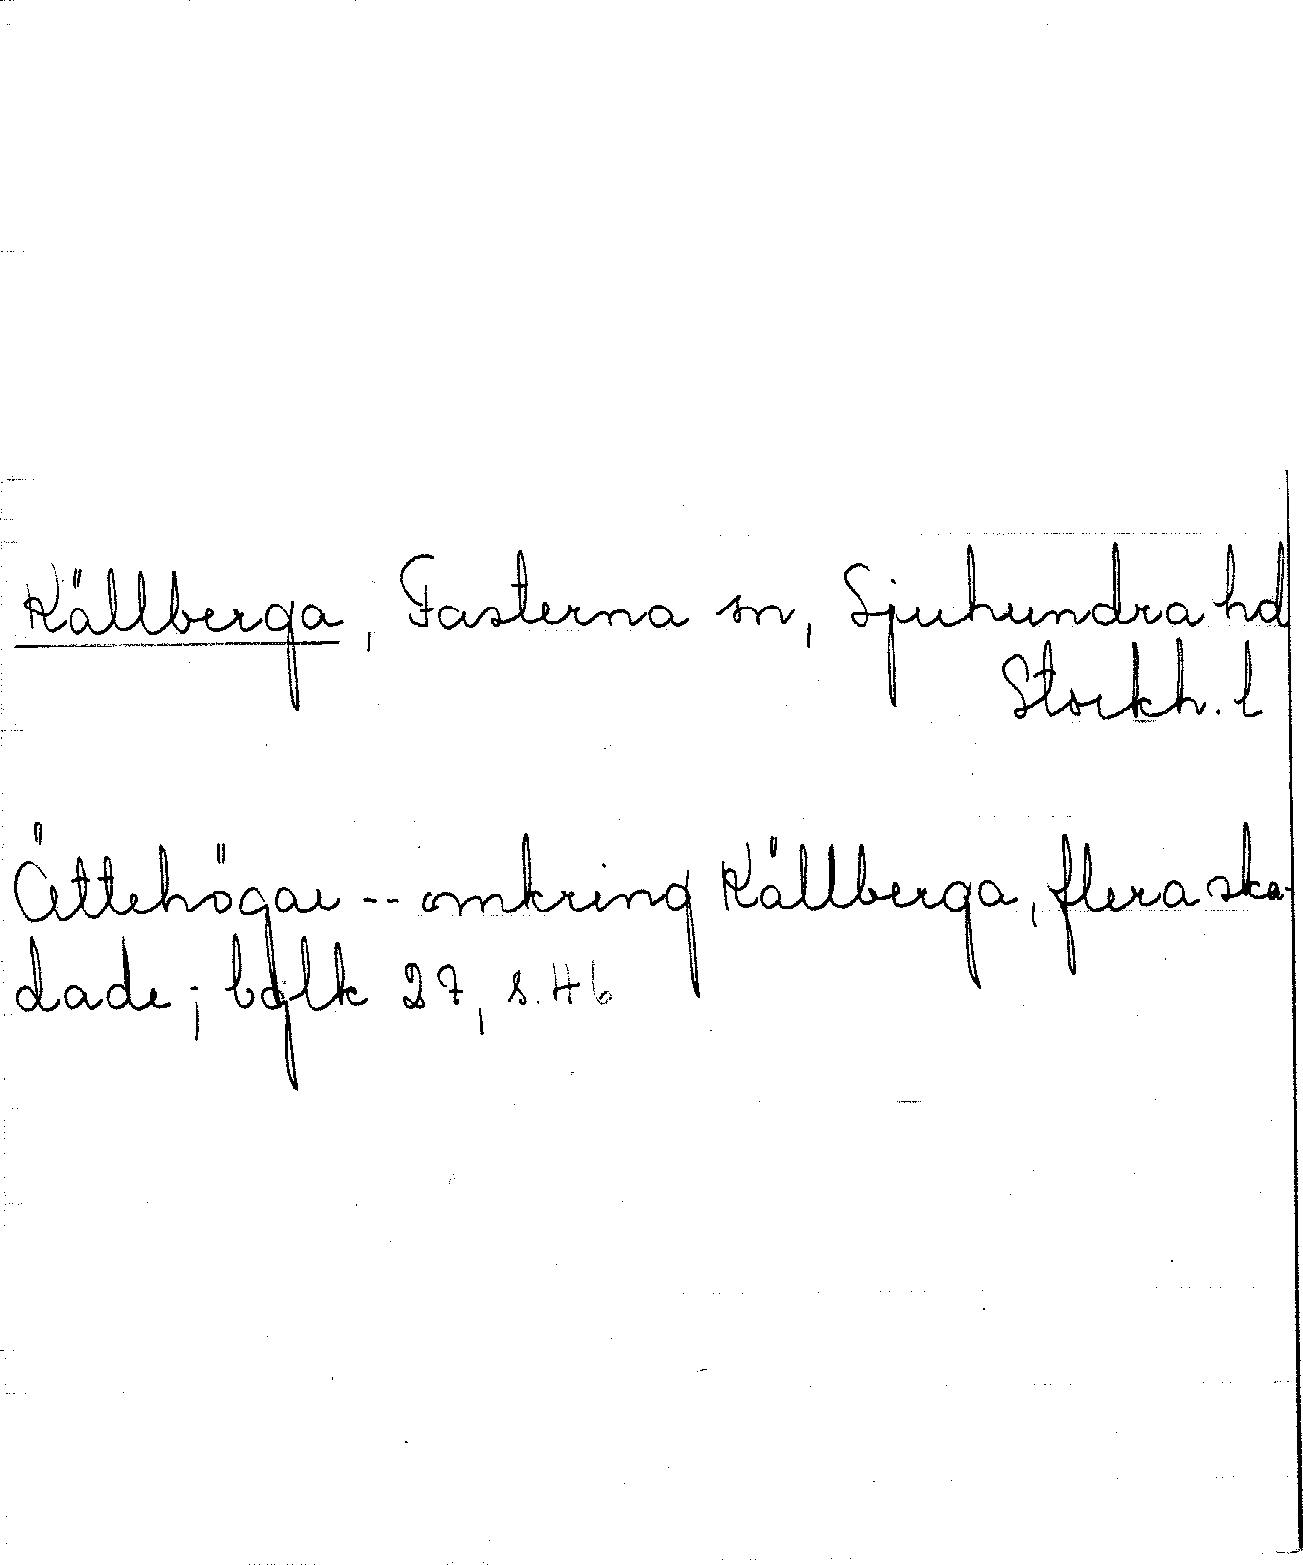 Källberga, Fasterna sn, Sjuhundra hd
Stockh. l
Ättehögar -- omkring Källberga, flera ska-
dade; bälk 27, s. 46